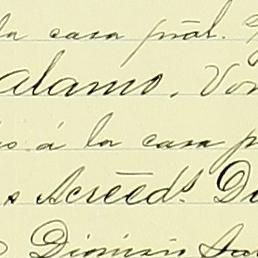 la casa prāl.
alamo. Von
á la casa p
s Acrēeds. Du
Dionisio